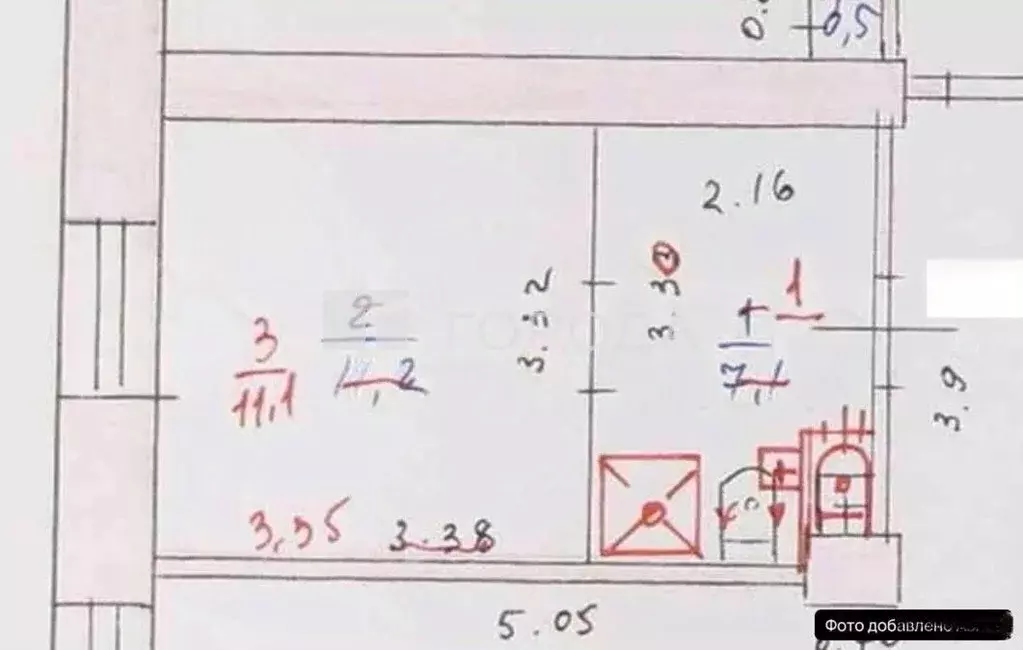 0,5
2.16
3.32
3.3
1
3
11,1
2
11,2
1
7,1
ГОРОДА
3.9
3,35
3.38
5.05
Фото добавлено